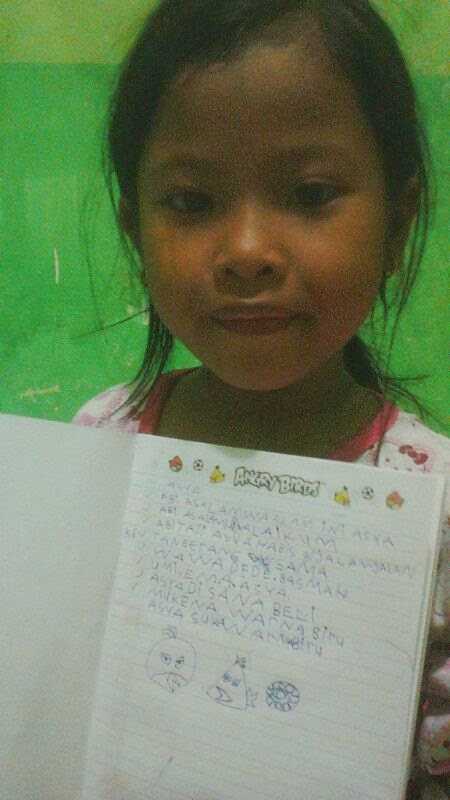 ANGRY BIRDS
ASYA
ABI ASALAMWAALAM INI ASYA
ABI ASALAMWALAIKUM
ABI TADI ASYA HABIS JALANJALAN
KEV TANGERANG SAMA
WAWA DEDE. BASMAN
UMI. EMA. ASYA
ASYADI SANA BELI
MUKENA WARNA BIRU
ASYA SUKA WARNABIRU